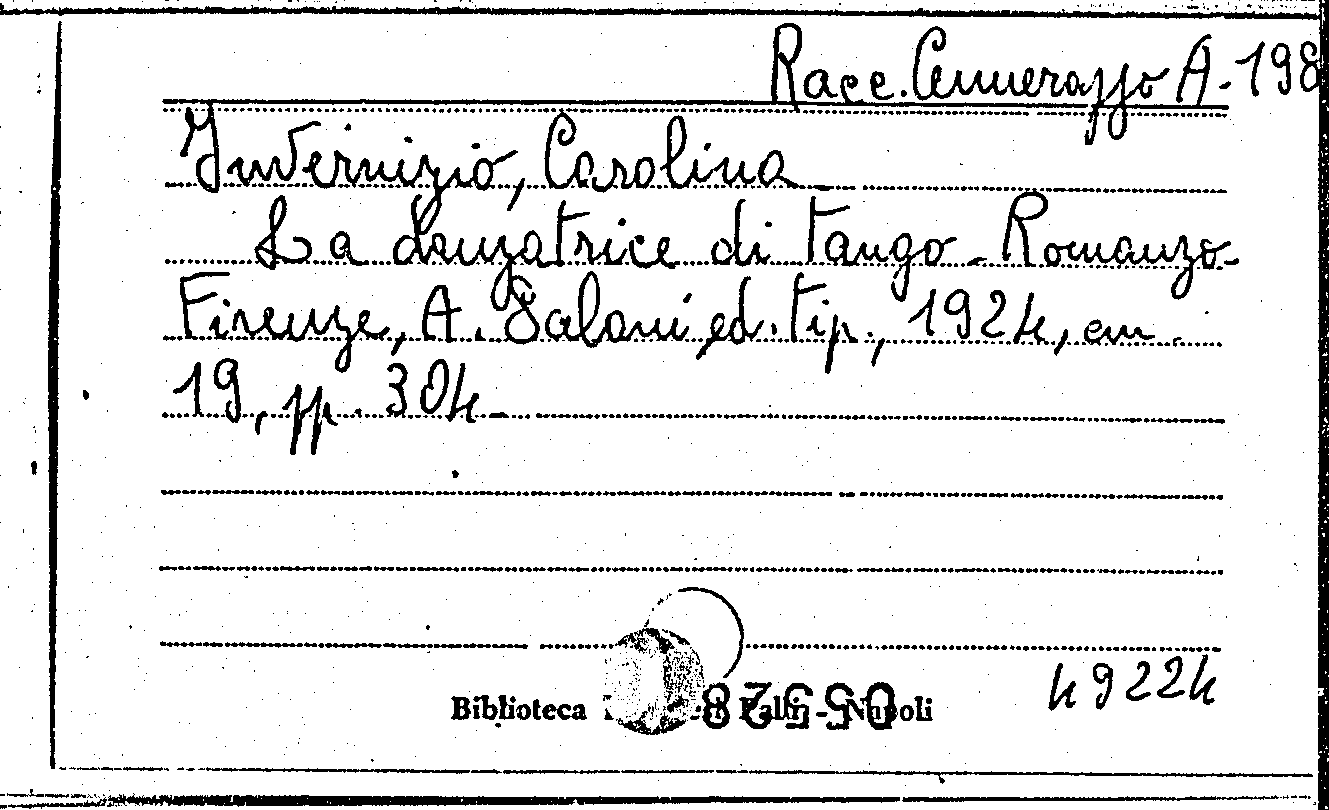 Racc. Cennerazzo A-198
Invernizio, Carolina
La danzatrice di tango - Romanzo -
Firenze, A. Salani, ed. tip., 1924, cm.
19, pp. 304 -
49224
Biblioteca - Napoli
05528